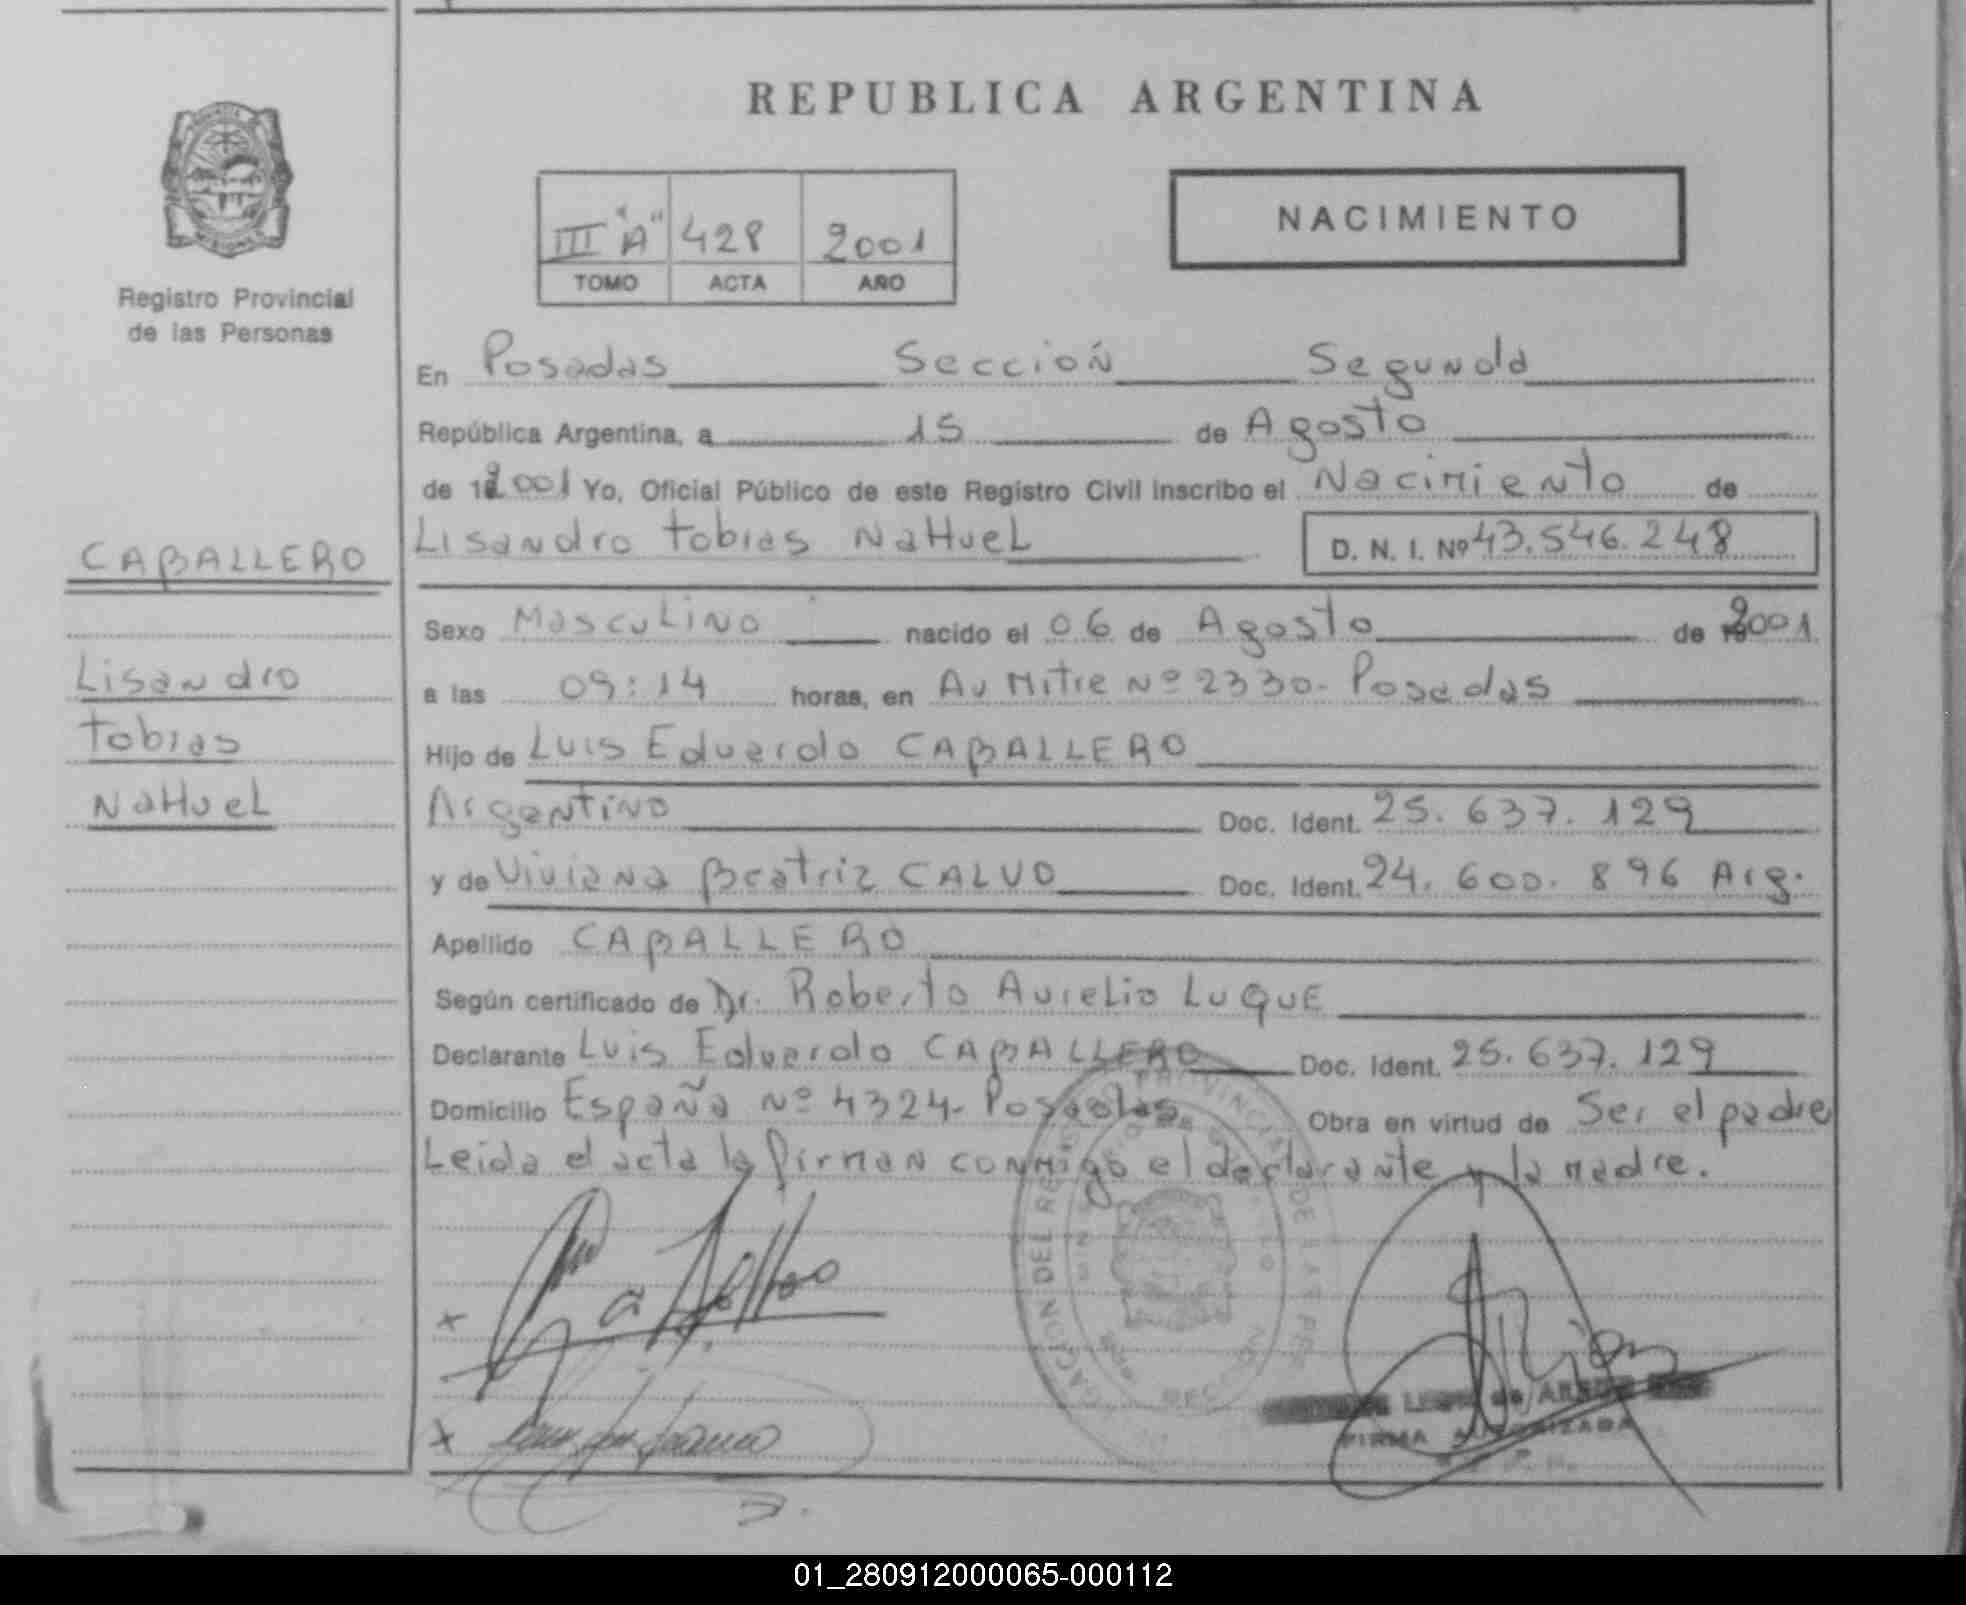 REPUBLICA ARGENTINA
III "A" 428 2001
TOMO ACTA AÑO
NACIMIENTO
Registro Provincial
de las Personas
En Posadas Sección Segunda
República Argentina, a 15 de Agosto
de 2001 Yo, Oficial Público de este Registro Civil inscribo el Nacimiento de
Lisandro Tobias NaHueL D. N. I. Nº 43.546.248
CABALLERO
Lisandro
Tobias
NaHueL
Sexo MascuLino nacido el 06 de Agosto de 2001
a las 09:14 horas, en Av Mitre Nº 2330- Posadas
Hijo de Luis Eduardo CABALLERO
Argentino Doc. Ident. 25. 637. 129
y de Viviana Beatriz CALVO Doc. Ident. 24. 600. 896 Arg.
Apellido CABALLERO
Según certificado de Dr. Roberto Aurelio LuQuE
Declarante Luis Eduardo CABALLERO Doc. Ident. 25. 637. 129
Domicilio España Nº 4324- Posadas Obra en virtud de Ser el padre
Leida el acta la firman conmigo el declarante y la madre.
PROVINCIAL DE LAS PE
FIRMA AUTORIZADA
01_280912000065-000112